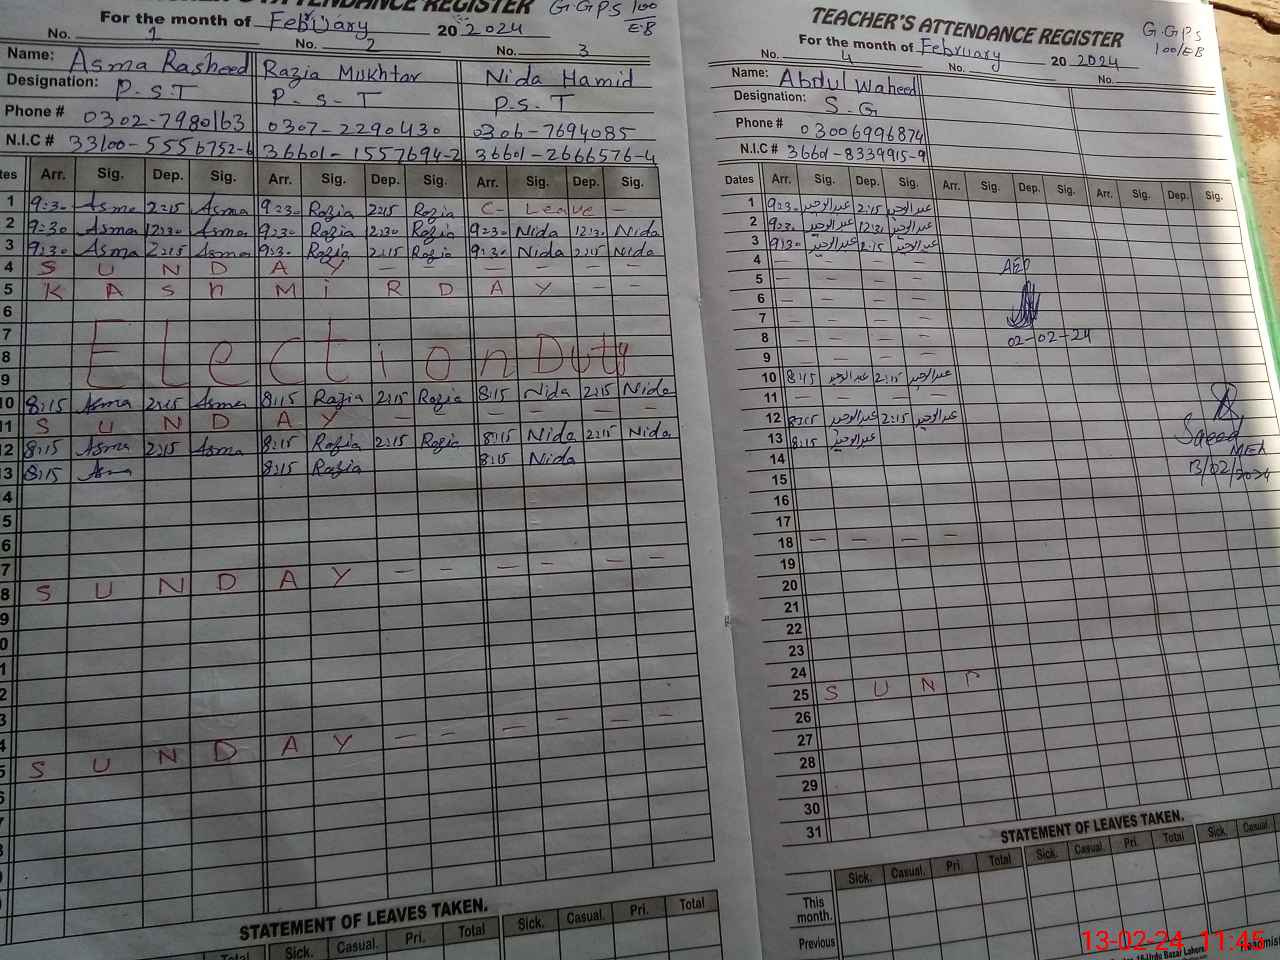 TEACHER'S ATTENDANCE REGISTER G.G.P.S 100/EB
For the month of February 20 2024
No. 1 No. 2 No. 3
Name: Asma Rasheed Razia Mukhtar Nida Hamid
Designation: P.S.T P.S.T P.S.T
Phone # 0302-7980163 0307-2290430 0306-7694085
N.I.C # 33100-5556752-6 36601-1557694-2 36601-2666576-4
Dates Arr. Sig. Dep. Sig. Arr. Sig. Dep. Sig. Arr. Sig. Dep. Sig.
1 9:30 Asma 2:15 Asma 9:30 Razia 2:15 Razia C- Leave -
2 9:30 Asma 12:30 Asma 9:30 Razia 12:30 Razia 9:30 Nida 12:30 Nida
3 9:30 Asma 2:15 Asma 9:30 Razia 2:15 Razia 9:30 Nida 2:15 Nida
4 S U N D A Y - - - - - -
5 K A S H M i R D A Y - -
6
7
8 Election Duty
9
10 8:15 Asma 2:15 Asma 8:15 Razia 2:15 Razia 8:15 Nida 2:15 Nida
11 S U N D A Y - - - - - -
12 8:15 Asma 2:15 Asma 8:15 Razia 2:15 Razia 8:15 Nida 2:15 Nida
13 8:15 Asma 8:15 Razia 8:15 Nida
4
5
6
7
8 S U N D A Y - - - - - -
9
0
1
2
3
4
5 S U N D A Y - - - - - -
STATEMENT OF LEAVES TAKEN.
Total Sick. Casual. Pri. Total Sick. Casual. Pri. Total
TEACHER'S ATTENDANCE REGISTER G.G.P.S 100/EB
For the month of February 20 2024
No. 4 No. No.
Name: Abdul Waheed
Designation: S.G
Phone # 03006996874
N.I.C # 36601-8339915-9
Dates Arr. Sig. Dep. Sig. Arr. Sig. Dep. Sig. Arr. Sig. Dep. Sig.
1 9:30 عبدالوحید 2:15 عبدالوحید
2 9:30 عبدالوحید 12:30 عبدالوحید
3 9:30 عبدالوحید 2:15 عبدالوحید
4 - - - - AEO
5 - - - -
6 - - - -
7 - - - -
8 - - - - 02-02-24
9 - - - -
10 8:15 عبدالوحید 2:15 عبدالوحید
11 - - - -
12 8:15 عبدالوحید 2:15 عبدالوحید
13 8:15 عبدالوحید Saeed
14 MEA
15 13/02/2024
16
17
18 - - - -
19
20
21
22
23
24
25 S U N
26
27
28
29
30
31
STATEMENT OF LEAVES TAKEN.
Sick. Casual. Pri. Total Sick. Casual. Pri. Total Sick. Casual.
This month.
Previous
13-02-24 11:45